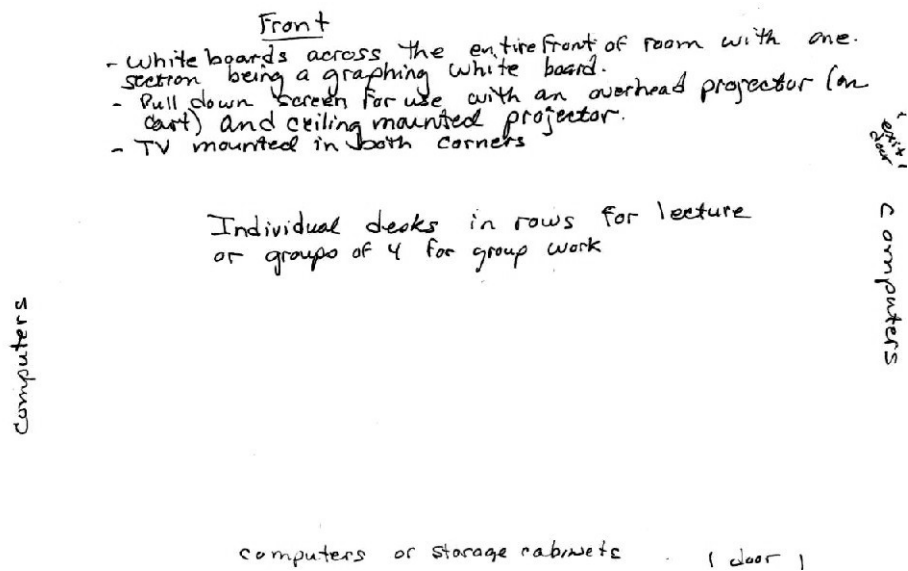 Front
- White boards across the entire front of room with one
section being a graphing white board.
- Pull down screen for use with an overhead projector (on
cart) and ceiling mounted projector.
- TV mounted in both corners
exit
door
Individual desks in rows for lecture
or groups of 4 for group work
computers
computers
computers or storage cabinets
door